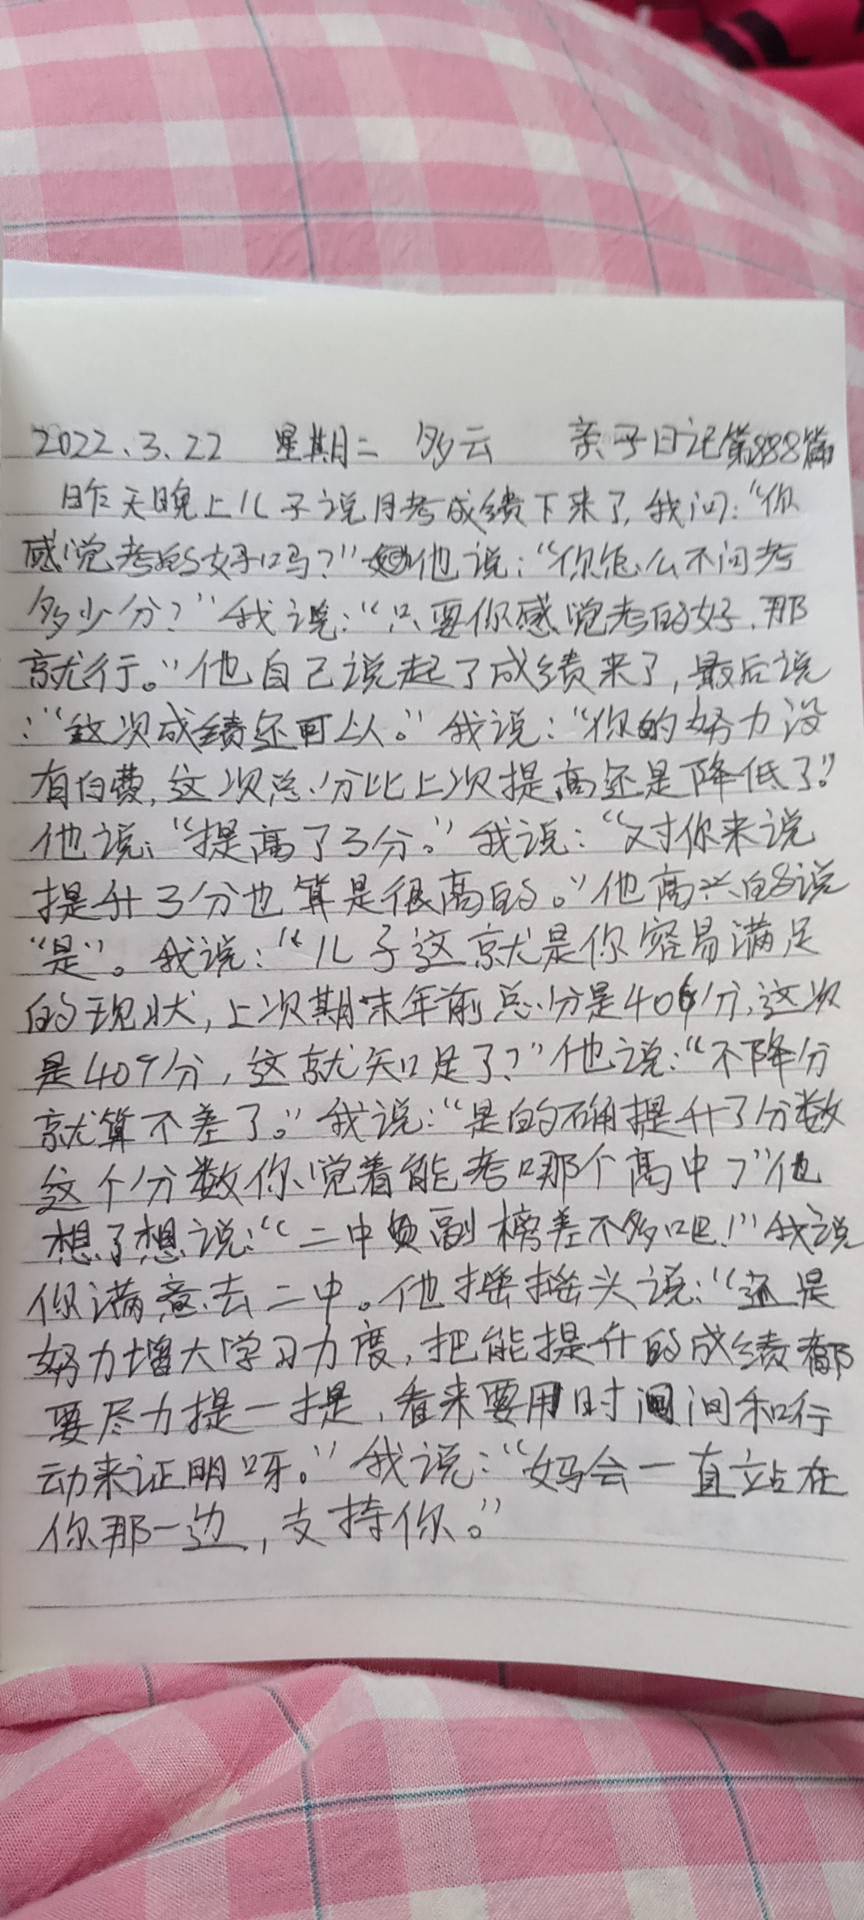 2022.3.22 星期二 多云 亲子日记第888篇
昨天晚上儿子说月考成绩下来了,我问:“你
感觉考的好吗?”他说:“你怎么不问考
多少分?”我说:“只要你感觉考的好,那
就行。”他自己说起了成绩来了,最后说
:“这次成绩还可以。”我说:“你的努力没
有白费,这次总分比上次提高还是降低了?”
他说:“提高了3分。”我说:“对你来说
提升3分也算是很高的。”他高兴的说
“是”。我说:“儿子这就是你容易满足
的现状,上次期末年前总分是406分,这次
是409分,这就知足了?”他说:“不降分
就算不差了。”我说:“是的确提升了分数
这个分数你觉着能考哪个高中?”他
想了想说:“二中副榜差不多吧!”我说
你满意去二中。他摇摇头说:“还是
努力增大学习力度,把能提升的成绩都
要尽力提一提,看来要用时间和行
动来证明呀。”我说:“妈会一直站在
你那一边,支持你。”